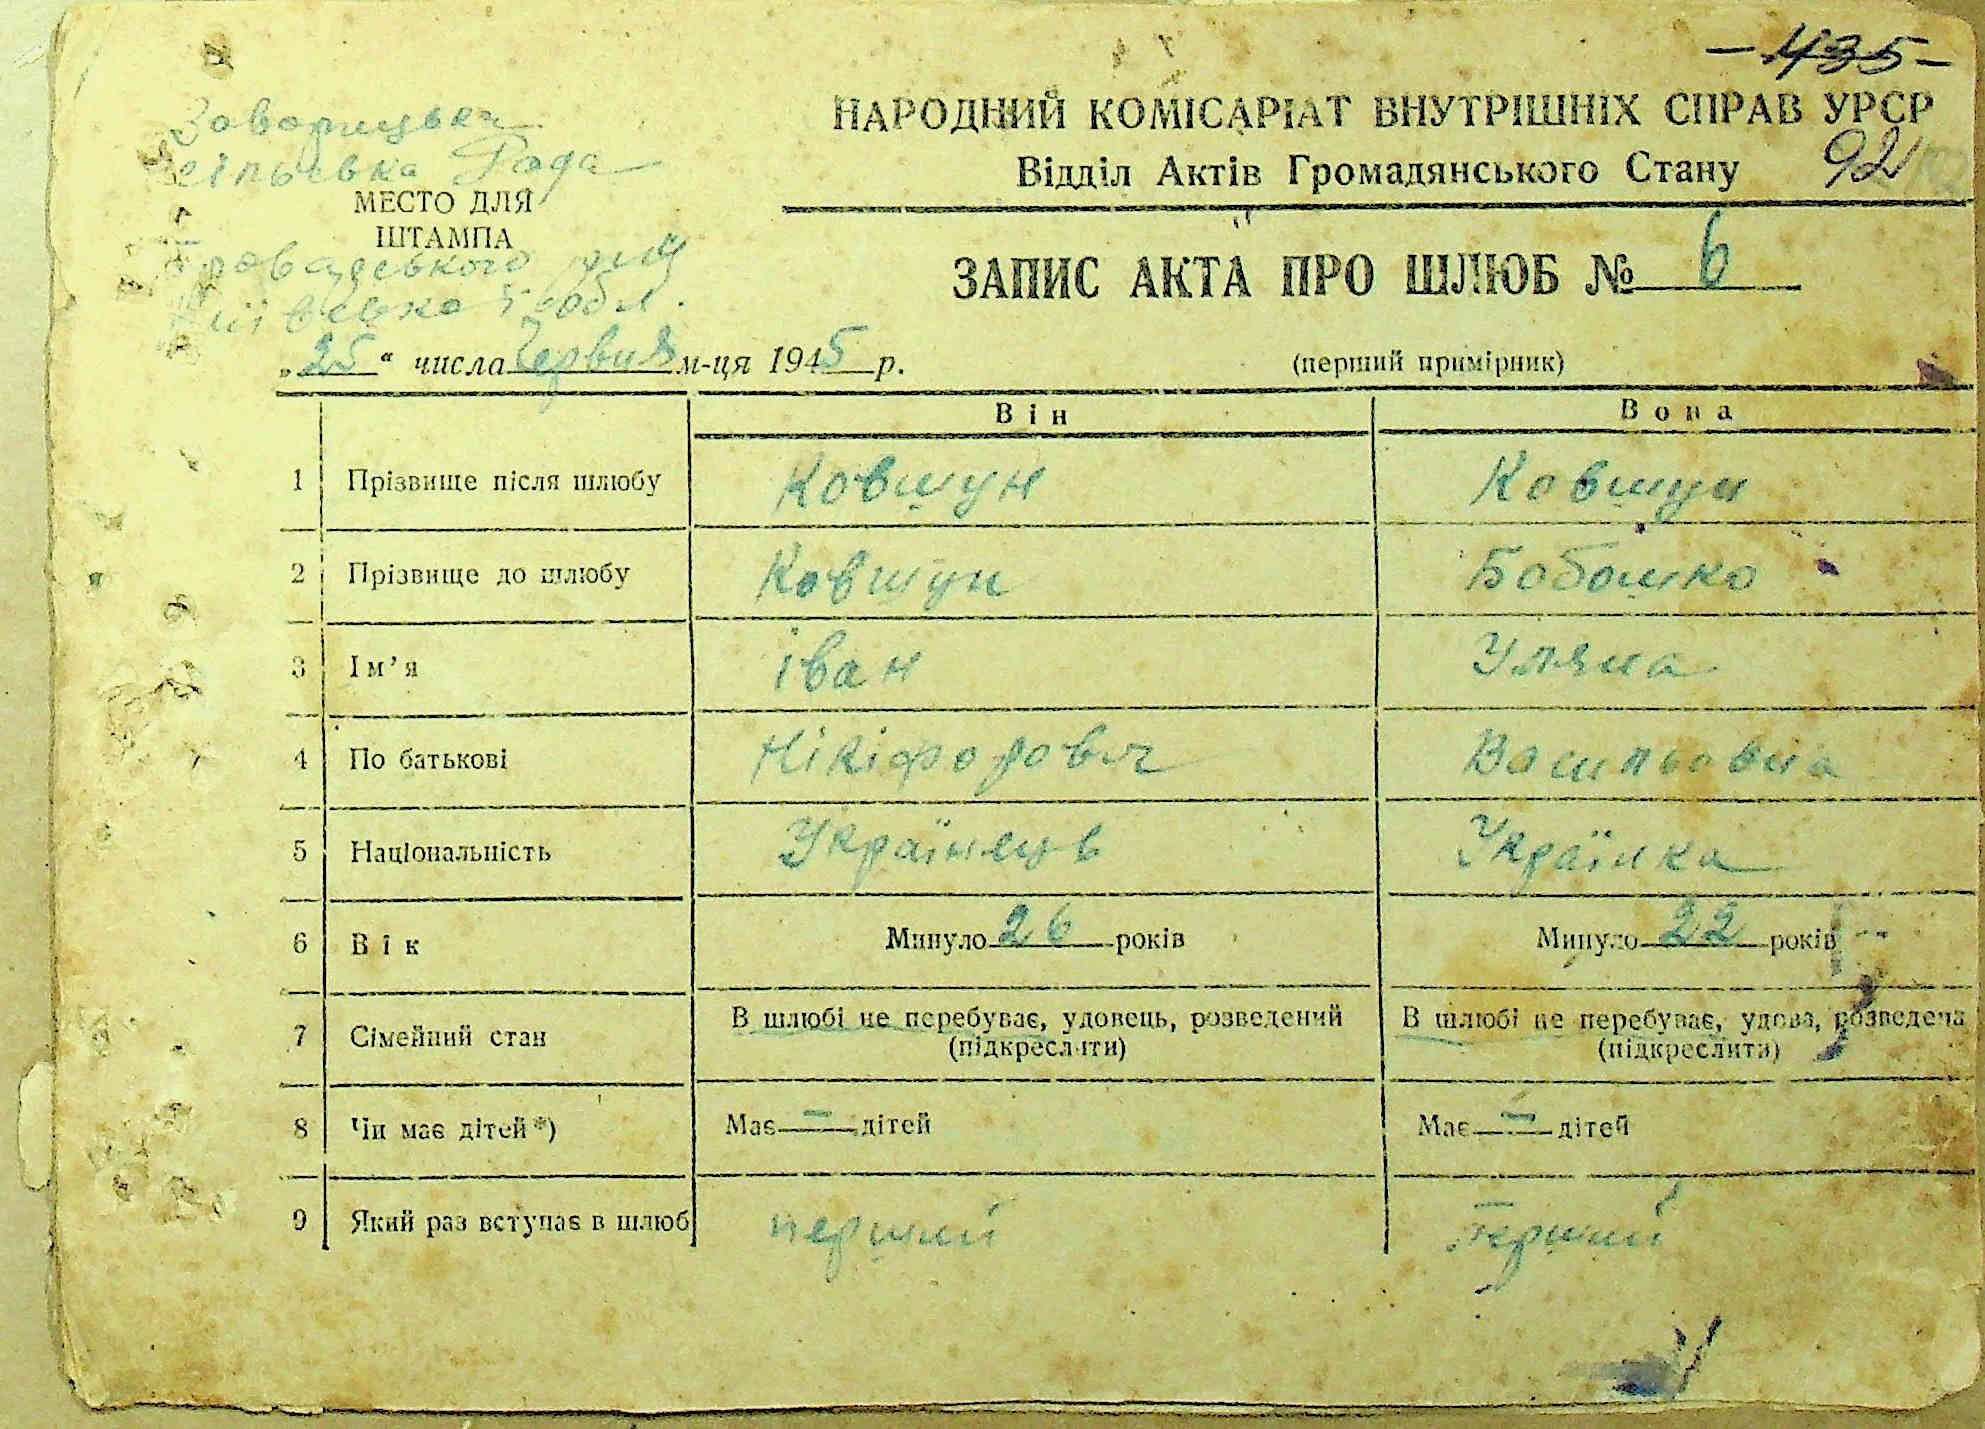 - 435 -
НАРОДНИЙ КОМІСАРІАТ ВНУТРІШНІХ СПРАВ УРСР
Відділ Актів Громадянського Стану 92
Заворицька
сільська Рада
МЕСТО ДЛЯ
ШТАМПА
Броварського р-ну
Київської обл.
ЗАПИС АКТА ПРО ШЛЮБ № 6
„25“ числа Червня м-ця 1945 р.
(перший примірник)
Він Вона
1 Прізвище після шлюбу Ковтун Ковтун
2 Прізвище до шлюбу Ковтун Бобошко
3 Ім’я іван Уляна
4 По батькові Нікіфорович Васильовна
5 Національність Українець Українка
6 Вік Минуло 26 років Минуло 22 років
7 Сімейний стан В шлюбі не перебуває, удовець, розведений В шлюбі не перебуває, удова, розведена
(підкреслити) (підкреслити)
8 Чи має дітей*) Має — дітей Має — дітей
9 Який раз вступає в шлюб перший перший